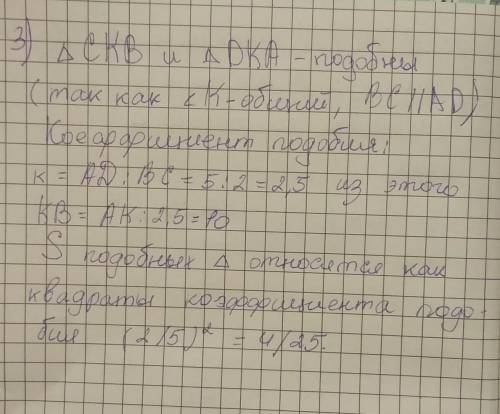 3) △ CKB и △ DKA - подобны
(так как < К - общий, BC || AD)
Коэффициент подобия:
к = AD : BC = 5 : 2 = 2,5 из этого
KB = AK : 2,5 = 10
S подобных △ относятся как
квадраты коэффициента подо-
бия (2/5)² = 4/25.